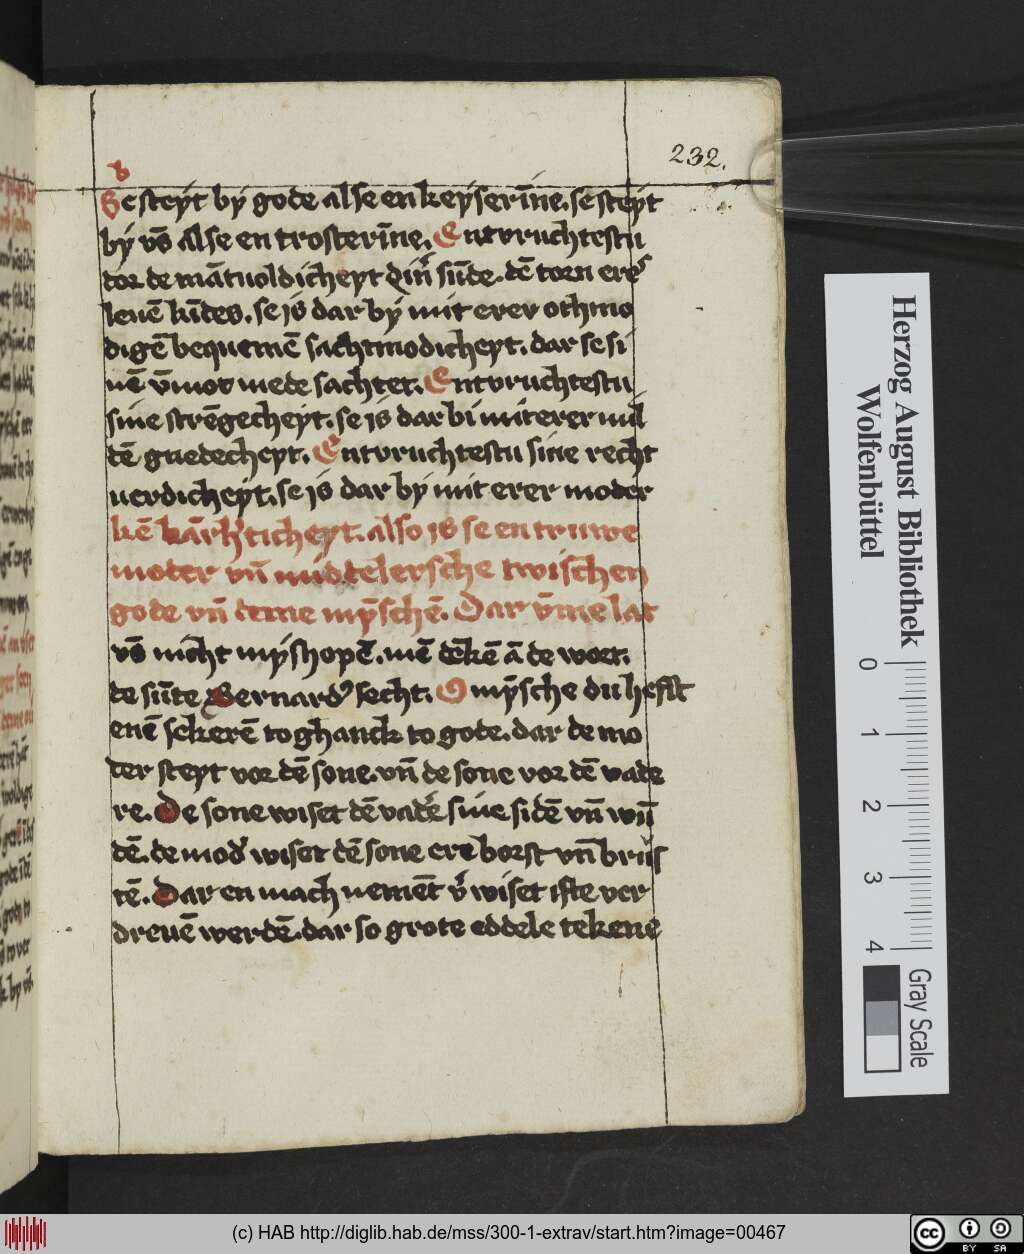 232.
b
Se steyt by gode alse en keyserīne. se steyt
by vs̄ alse en trosterīne. Entvruchtestu
dor de mātuoldicheyt dinˀ sūde. dē torn eres
leuē kīdes. se is dar by mit erer othmo
digē bequemē sachtmodicheyt. dar se si
nē v̄mot mede sachtet. Entvruchtestu
sine strēgecheyt. se is dar bi mit erer mil
dē guedecheyt. Entvruchtestu sine recht
uerdicheyt. se is dar by mit erer moder
kē bārhˀticheyt. also is se en truwe
moter vn̄ middelersche twischen
gode vn̄ deme mȳschē. Dar v̄me lat
vs̄ nicht myshopē. mē dēkē ā de wort.
de sūte Bernardˀ secht. O mȳsche du hefst
enē sekerē toghanck to gode. dar de mo
der steyt vor dē sone. vn̄ de sone vor dē vade
re. De sone wiset dē vadˀe sine sidē vn̄ wū
dē. de modˀ wiset dē sone ere borst vn̄ brus
tē. Dar en mach nement vˀwiset ifte ver
dreuē werdē. dar so grote eddele tekene
Herzog August Bibliothek
Wolfenbüttel
0 1 2 3 4
Gray Scale
(c) HAB http://diglib.hab.de/mss/300-1-extrav/start.htm?image=00467
cc BY SA